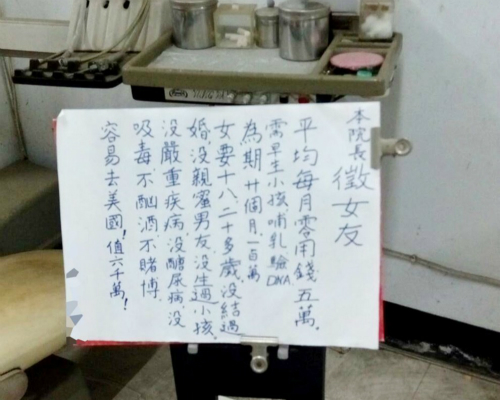 本院長徵女友
平均每月零用錢五萬.
需早生小孩哺乳驗DNA
為期廿個月.一百萬
女要十八、二十多歲.沒結過
婚沒親蜜男友沒生過小孩.
沒嚴重疾病.沒醣尿病.沒
吸毒不酗酒不賭博.
容易去美國!值六千萬!